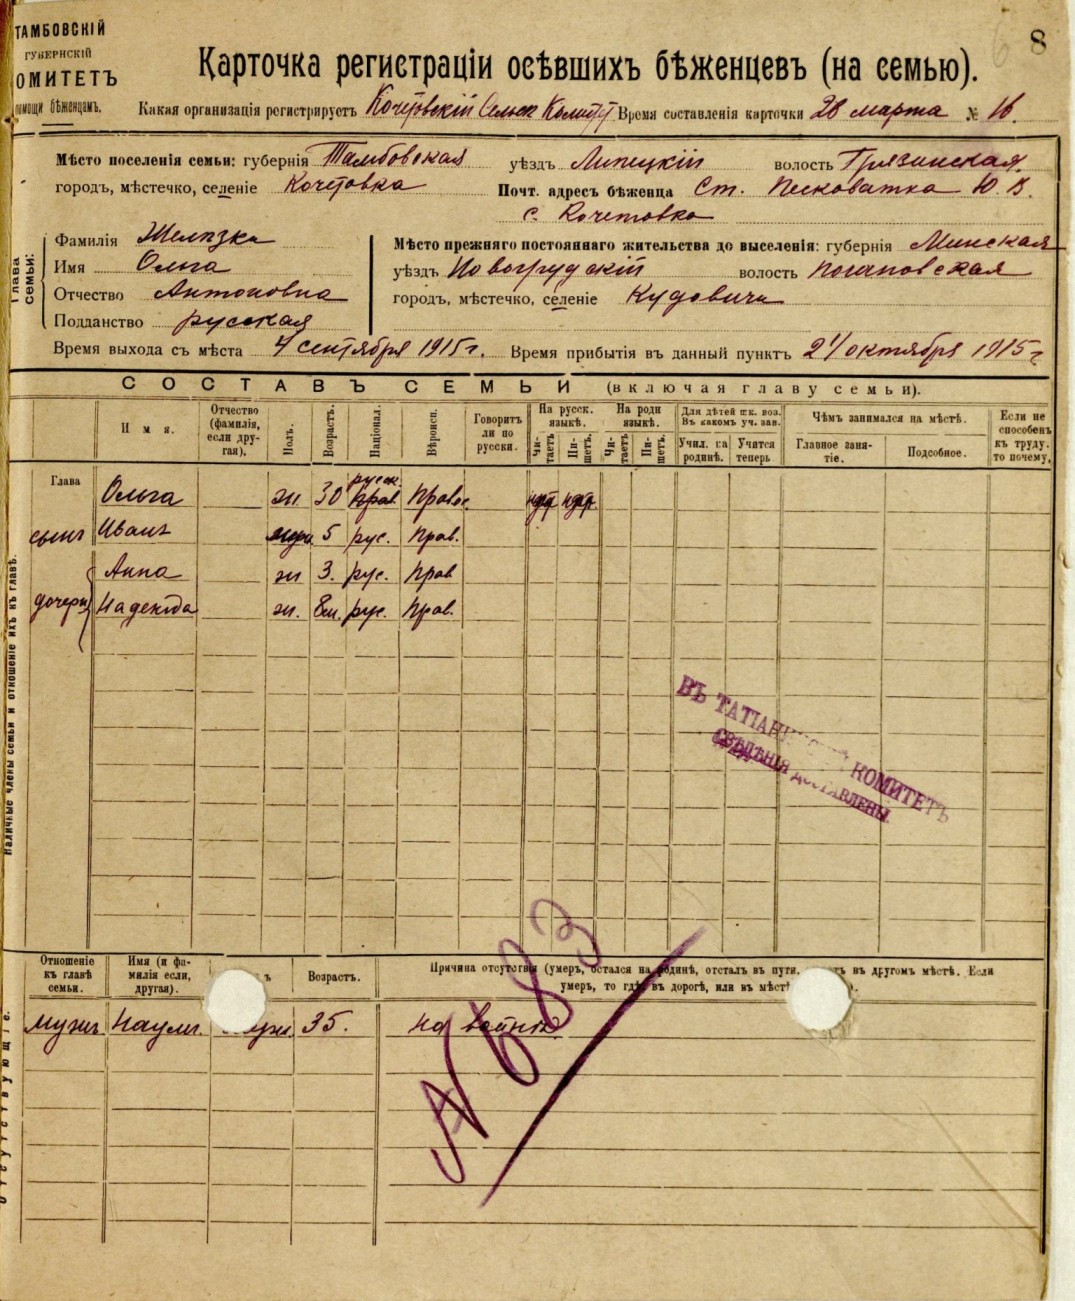 ТАМБОВСКІЙ
ГУБЕРНСКІЙ
ОМИТЕТЪ
помощи бѣженцамъ.
8
Карточка регистраціи осѣвшихъ бѣженцевъ (на семью).
Какая организація регистрируетъ Кочетовскій Сельск Комитет Время составленія карточки 28 марта № 16.
Мѣсто поселенія семьи: губернія Тамбовская уѣздъ Липецкій волость Грязинская
городъ, мѣстечко, селеніе Кочетовка Почт. адресъ бѣженца Ст. Песковатка Ю. В.
с. Кочетовка
Глава семьи:
Фамилія Желязко
Имя Ольга
Отчество Антоновна
Подданство русская
Мѣсто прежняго постояннаго жительства до выселенія: губернія Минская
уѣздъ Новогрудскій волость Почаповская
городъ, мѣстечко, селеніе Кудовичи
Время выхода съ мѣста 4 сентября 1915 г. Время прибытія въ данный пунктъ 21 октября 1915 г
СОСТАВЪ СЕМЬИ (включая главу семьи).
Имя. Отчество (фамилія, если другая). Полъ. Возрастъ. Націонал. Вѣроисп. Говоритъ ли по русски. На русск. языкѣ. Читаетъ Пишетъ. На родн языкѣ. Читаетъ Пишетъ. Для дѣтей шк. воз. Въ какомъ уч. зав. Учил. на родинѣ. Учится теперь Чѣмъ занимался на мѣстѣ. Главное занятіе. Подсобное. Если не способенъ къ труду, то почему.
Наличные члены семьи и отношеніе ихъ къ главѣ.
Глава Ольга ж. 30 русск. прав. Правос. нѣтъ нѣтъ
сынъ Иванъ муж. 5 рус. Прав.
дочери Анна ж 3. рус. Прав
Надежда ж. 8м. рус. Прав.
ВЪ ТАТІАН КОМИТЕТЪ
СВѢДѢНІЯ ДОСТАВЛЕНЫ.
Отсутствующіе.
Отношеніе къ главѣ семьи. Имя (и фамилія если, другая). Возрастъ. Причина отсутствія (умеръ, остался на родинѣ, отсталъ въ пути, въ другомъ мѣстѣ. Если умеръ, то гдѣ: въ дорогѣ, или въ мѣстѣ
мужъ Наумъ. муж. 35. на войнѣ
№ 683